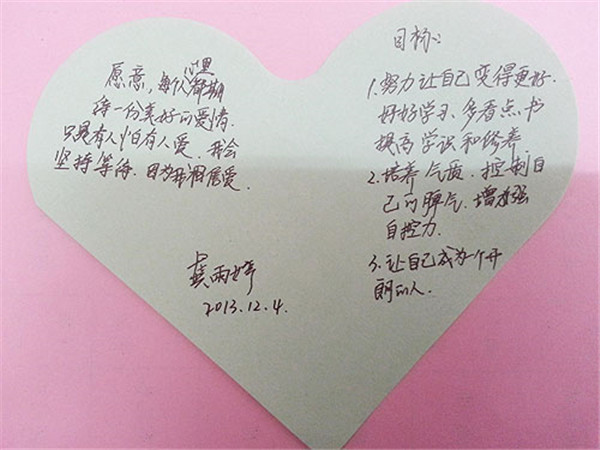 愿意,每个人心里都期
待一份美好的爱情.
只是有人怕有人爱.我会
坚持等待.因为我相信爱.
雨婷
2013.12.4.
目标:
1.努力让自己变得更好.
好好学习、多看点书
提高学识和修养.
2.培养气质.控制自
己的脾气.增强
自控力.
3.让自己成为一个开
朗的人.